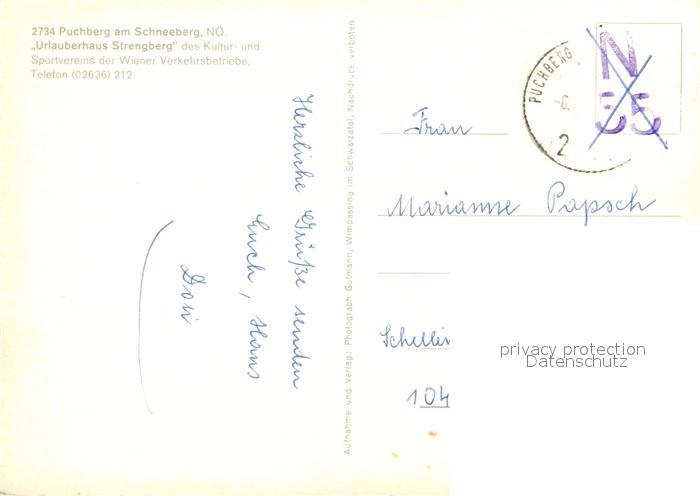 2734 Puchberg am Schneeberg, NÖ.
„Urlauberhaus Strengberg" des Kultur- und
Sportvereins der Wiener Verkehrsbetriebe,
Telefon (02636) 212
Herzliche Grüße senden
Euch, Hans
Dori
Aufnahme und Verlag: Photograph Gutmann, Wimpassing im Schwarzatal, Nachdruck verboten
PUCHBERG
-6.
2
N
35
Frau
Marianne Papsch
Schellin
104
privacy protection
Datenschutz